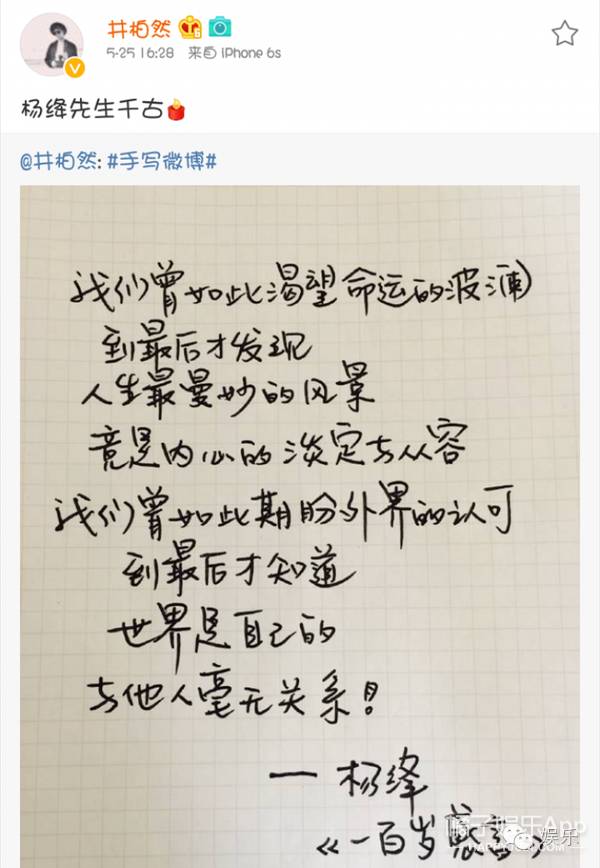 井柏然
5-25 16:28 来自 iPhone 6s
杨绛先生千古
@井柏然: #手写微博#
我们曾如此渴望命运的波澜
到最后才发现
人生最曼妙的风景
竟是内心的淡定与从容
我们曾如此期盼外界的认可
到最后才知道
世界是自己的
与他人毫无关系!
— 杨绛
《一百岁感言》
橘子娱乐App
娱乐